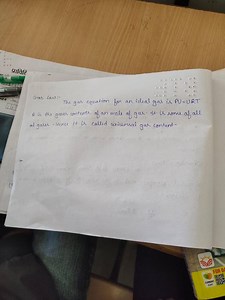 The gas equation for an ideal gas is PV=nRT
R is the gases constant of one mole of gas. It is same of all
gases. Hence it is called universal gas constant.